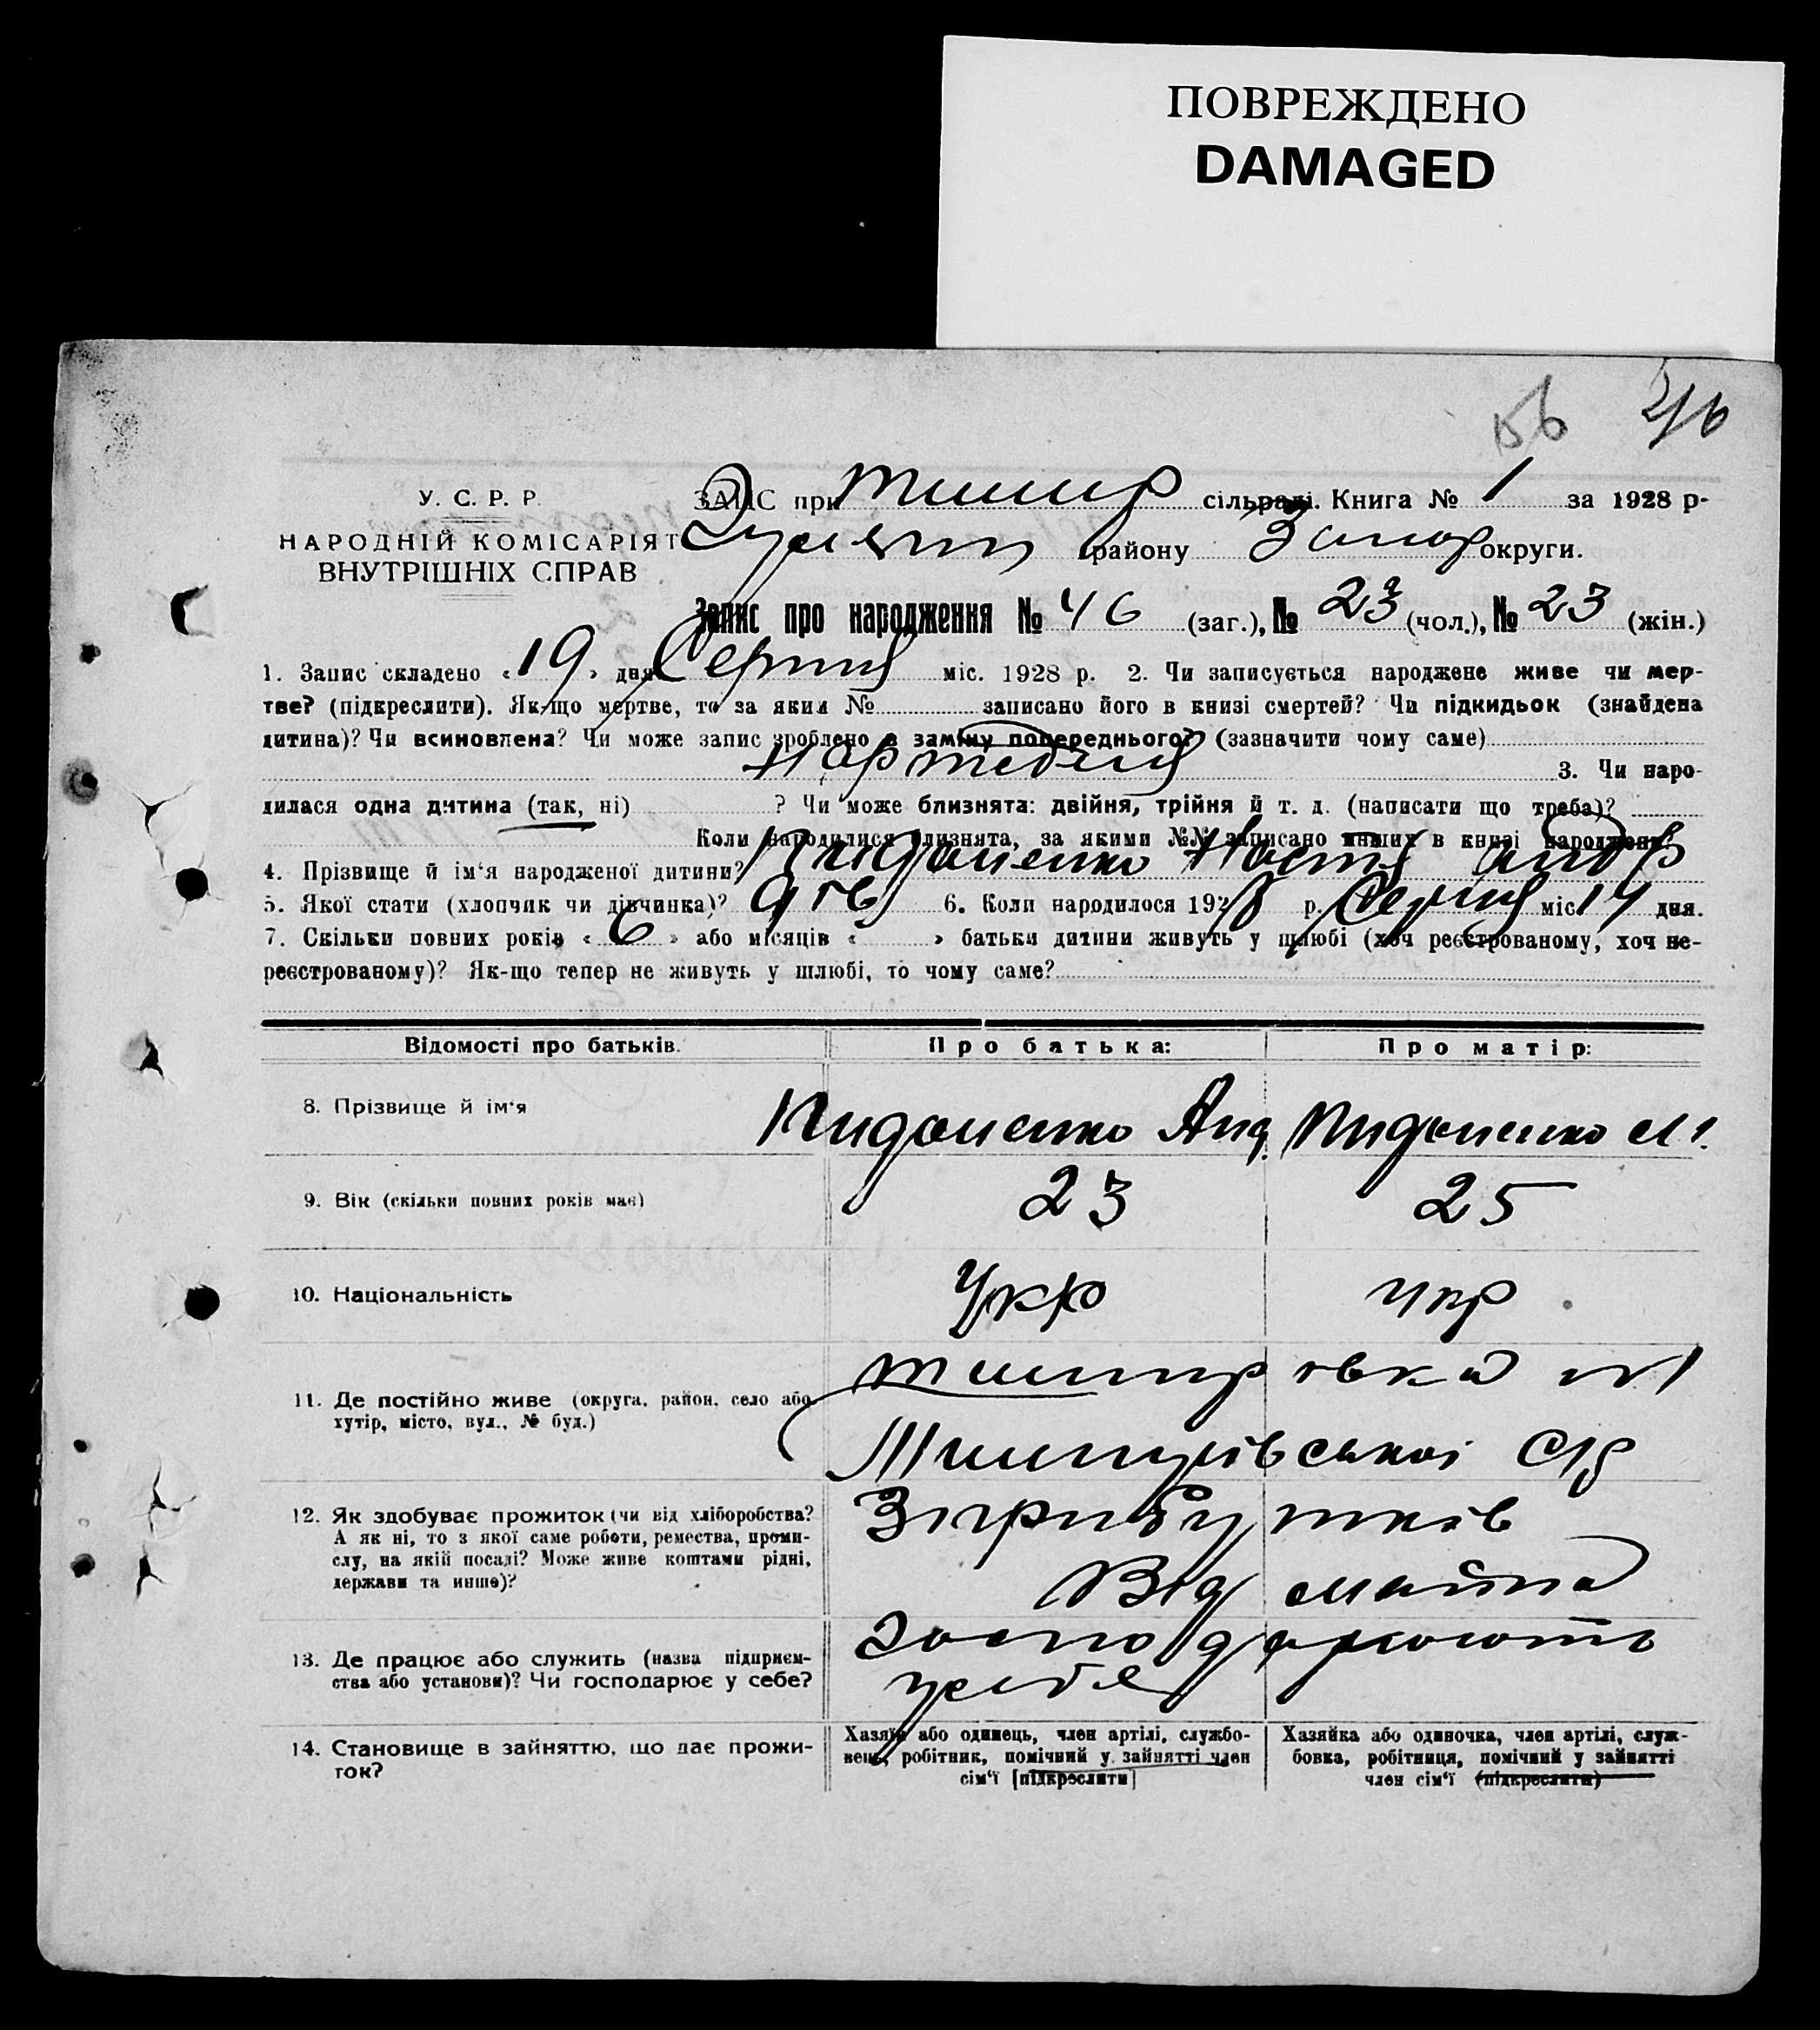 ПОВРЕЖДЕНО
DAMAGED
56
У. С. Р. Р.
НАРОДНІЙ КОМІСАРІЯТ
ВНУТРІШНІХ СПРАВ
ЗАПИС при сільраді. Книга № 1 за 1928 р-
району Запор округи.
Запис про народження № 46 (заг.), № 23 (чол.), № 23 (жін.)
1. Запис складено «19» дня Серпня міс. 1928 р. 2. Чи записується народжене живе чи мер-
тве? (підкреслити). Як-що мертве, то за яким № записано його в книзі смертей? Чи підкидьок (знайдена
дитина)? Чи всиновлена? Чи може запис зроблено в заміну попереднього? (зазначити чому саме)
3. Чи наро-
дилася одна дитина (так, ні) ? Чи може близнята: двійня, трійня й т. д. (написати що треба)?
Коли народилися близнята, за якими №№ записано инших в книзі народжень?
4. Прізвище й ім‘я народженої дитини?
5. Якої стати (хлопчик чи дівчинка)? 6. Коли народилося 1928 р. Серпня міс. 14 дня.
7. Скільки повних років «6» або місяців « » батьки дитини живуть у шлюбі (хоч реєстрованому, хоч не-
реєстрованому)? Як-що тепер не живуть у шлюбі, то чому саме?
Відомості про батьків. Про батька: Про матір:
8. Прізвище й ім‘я
9. Вік (скільки повних років має) 23 25
10. Національність Укр Укр
11. Де постійно живе (округа, район, село або
хутір, місто, вул., № буд.)
12. Як здобуває прожиток (чи від хліборобства?
А як ні, то з якої саме роботи, ремества, проми-
слу, на якій посаді? Може живе коштами рідні,
держави та инше)?
Зприбутків
Від майна
13. Де працює або служить (назва підприєм-
ства або установи)? Чи господарює у себе?
Господарюють
усебе
14. Становище в зайняттю, що дає прожи-
ток?
Хазяїн або одинець, член артілі, службо-
вець, робітник, помічний у зайнятті член
сім‘ї [підкреслити]
Хазяйка або одиночка, член артілі, служ-
бовка, робітниця, помічний у зайнятті
член сім‘ї (підкреслити)